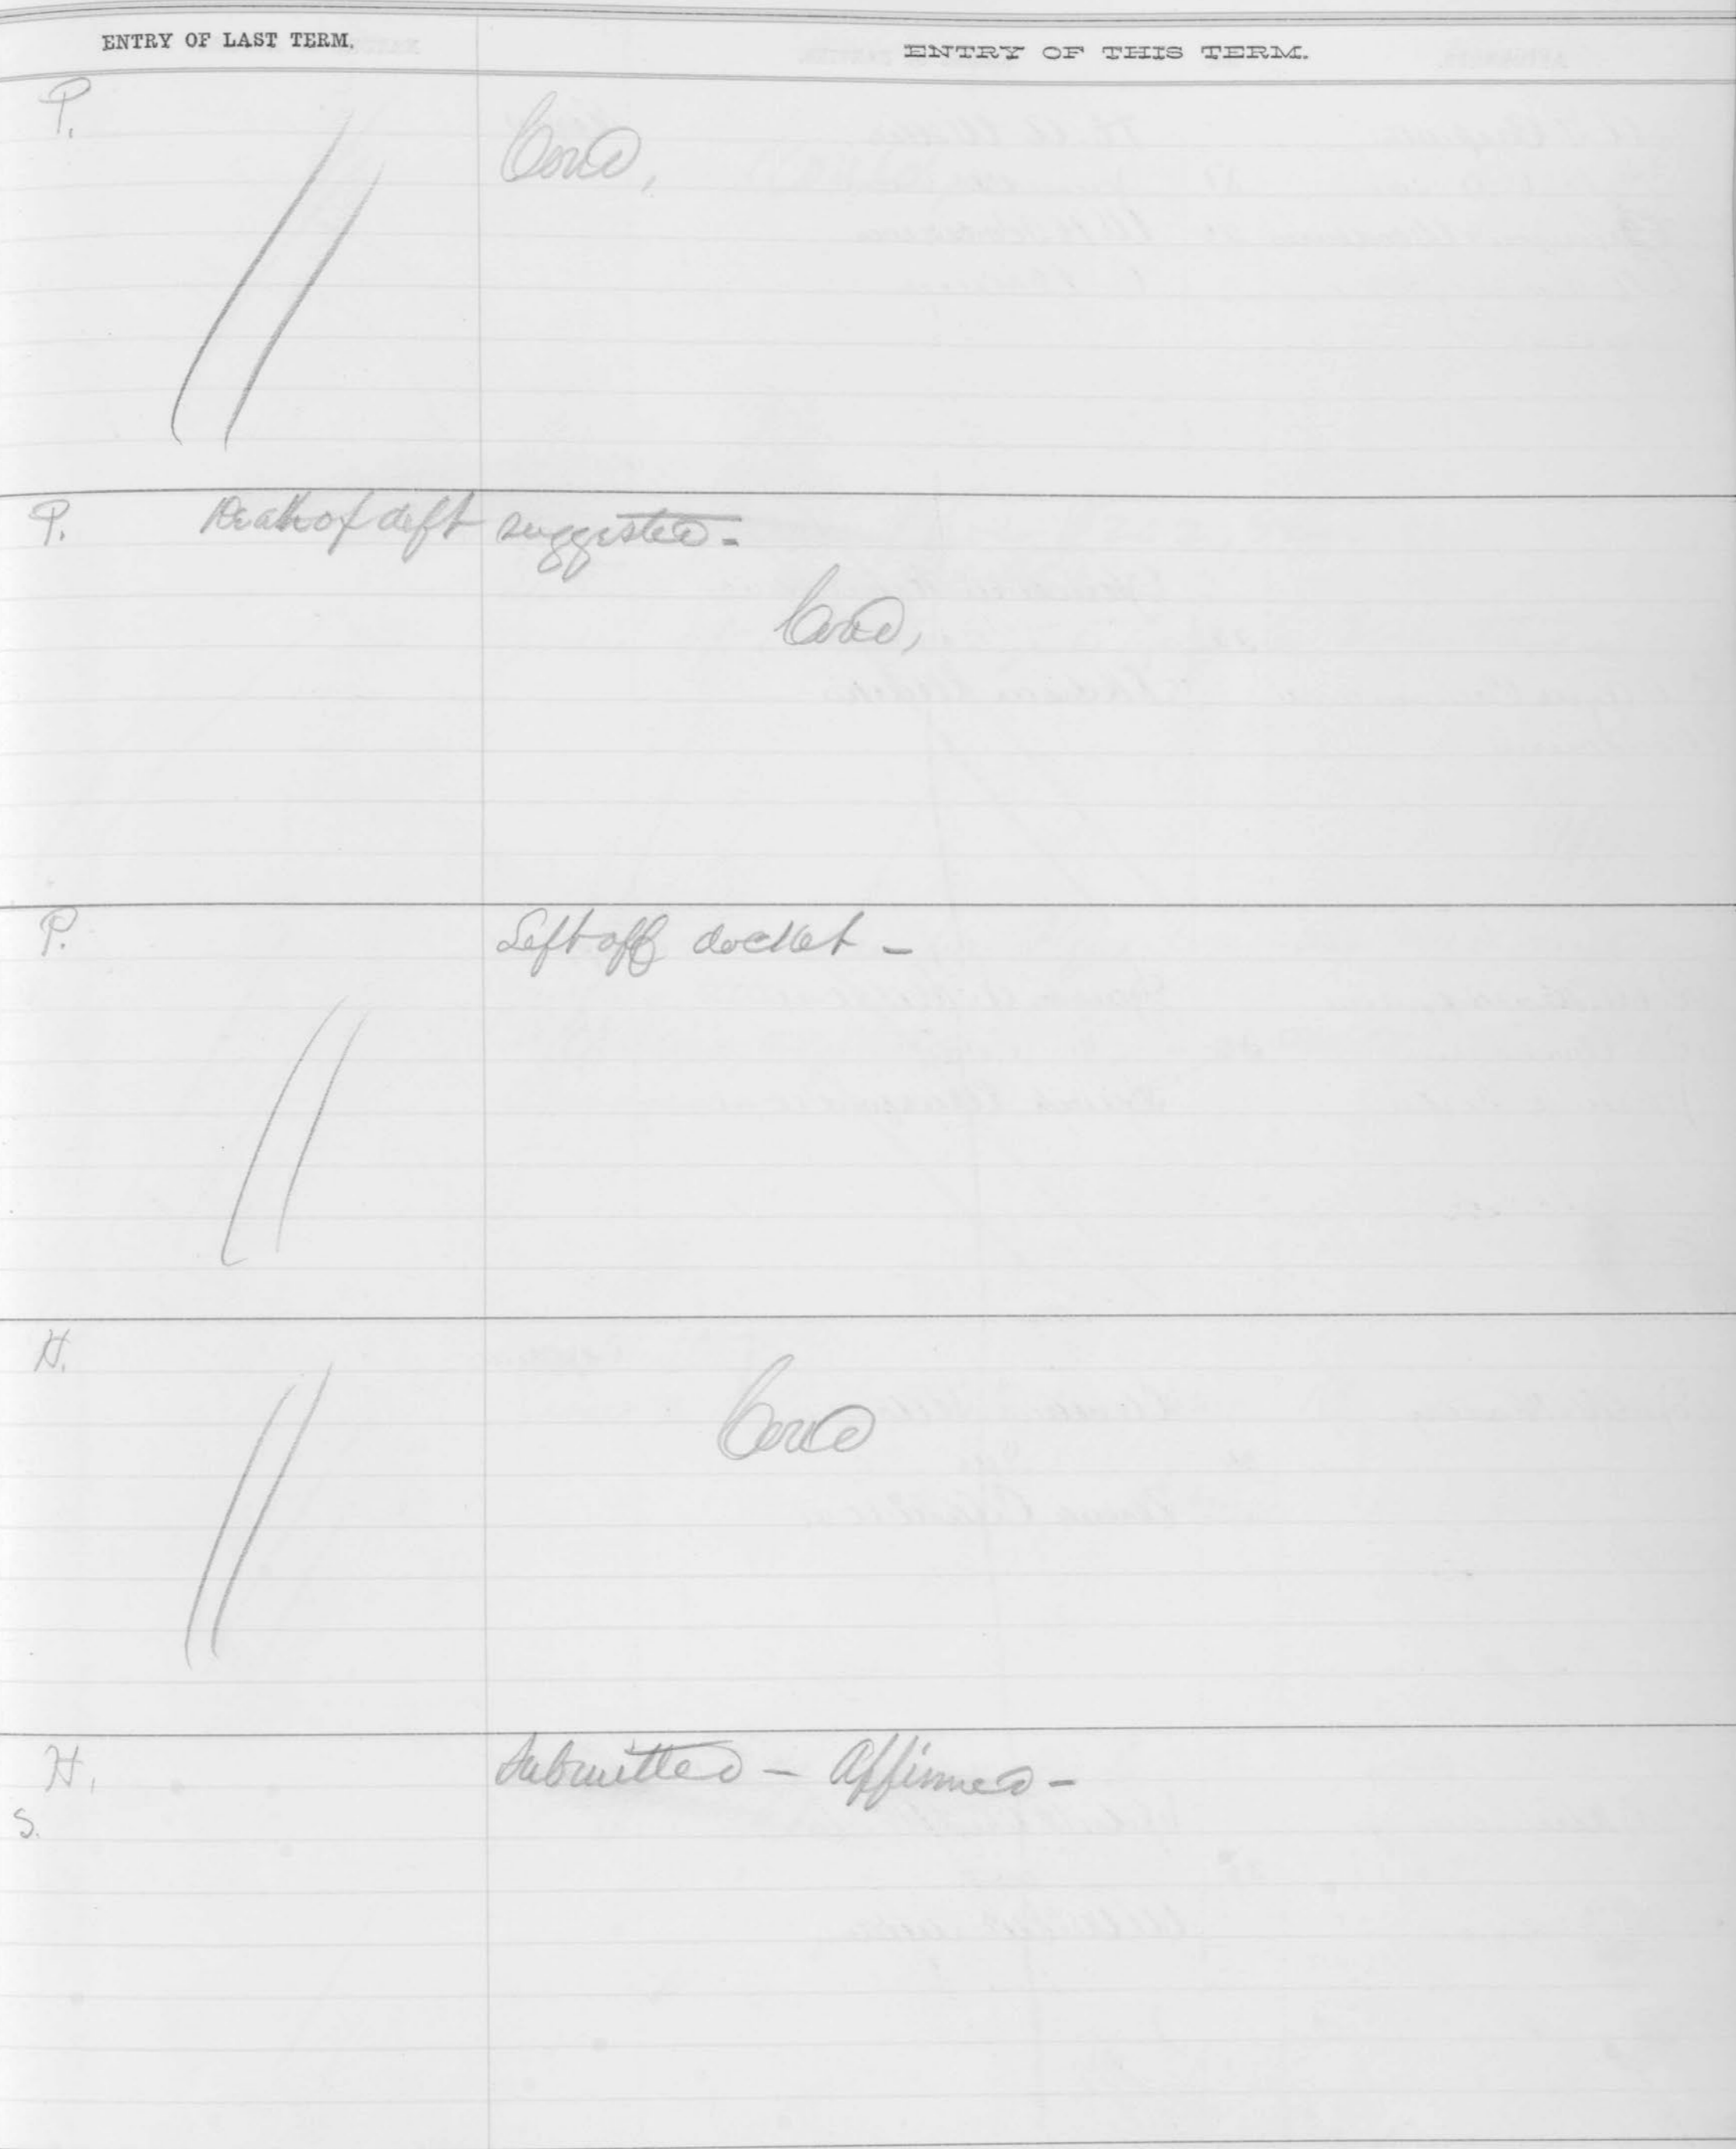 ENTRY OF LAST TERM. ENTRY OF THIS TERM.
P. Cond,
P. Death of deft suggested -
Cond,
P. Left off docket -
H.
Cond
H. Submitted - Affirmed -
S.